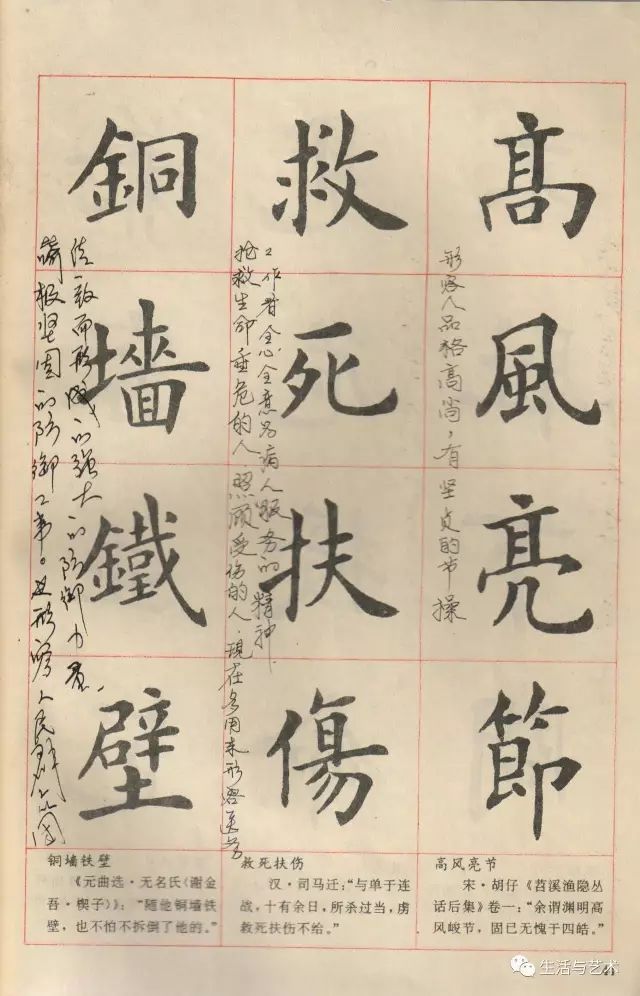 高風亮節
形容人品格高尚,有坚贞的节操
救死扶傷
抢救生命垂危的人,照顾受伤的人.现在多用来形容医务
工作者全心全意为病人服务的精神.
銅墻鐵壁
坚固的防御工事。也形容人民群众团
结一致而形成的强大的防御力量.
铜墙铁壁
《元曲选·无名氏〈谢金
吾·楔子〉》:“随他铜墙铁
壁,也不怕不拆倒了他的。”
救死扶伤
汉·司马迁:“与单于连
战,十有余日,所杀过当,虏
救死扶伤不给。”
高风亮节
宋·胡仔《苕溪渔隐丛
话后集》卷一:“余谓渊明高
风峻节,固已无愧于四皓。”
生活与艺术